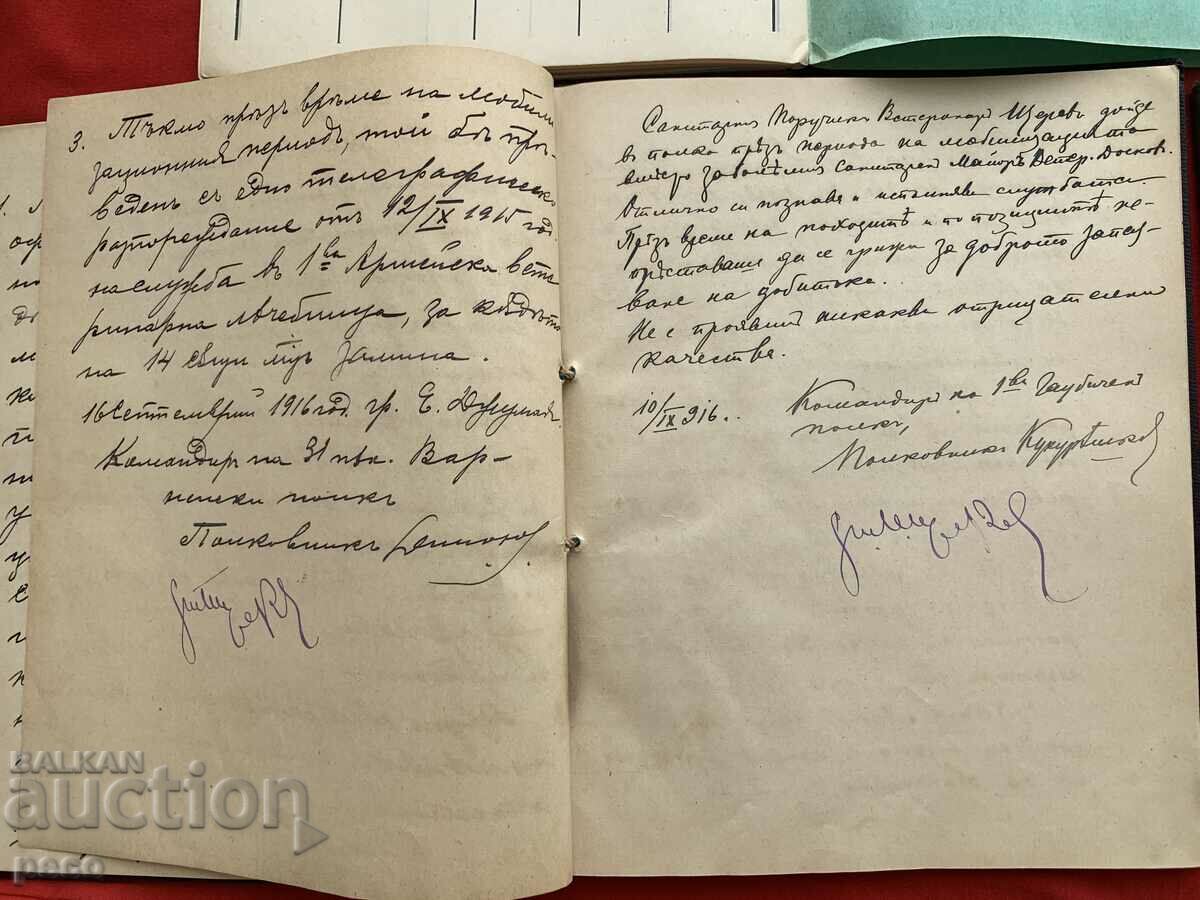 3. Тъкмо презъ време на мобили
зационния периодъ, той бѣ прѣ-
веденъ съ едно телеграфическо
разпореждание отъ 12/IX 1915 год.
на служба въ 1ва Армейска вете
ринарна лѣчебница, за кѫдѣто
на 14 сѫщи замина.
16 Септемврий 1916 год. гр. Е. Джумая
Командиръ на 31 пѣх. Вар-
ненски полкъ
Полковникъ
Санитаренъ Поручикъ Ветеринаръ Щеревъ дойде
въ полка прѣзъ периода на мобилизацията
вмѣсто заболѣлия Санитаренъ Майоръ Ветер. Досковъ.
Отлично си познава и изпълнява службата си.
Прѣзъ време на походитѣ и по позициитѣ не-
прѣставаше да се грижи за доброто запаз-
ване на добитъка.
Не е проявилъ никакви отрицателни
качества.
10/IX 916.
Командиръ на 1ви Гаубиченъ
полкъ,
Полковникъ
BALKAN
auction
peco